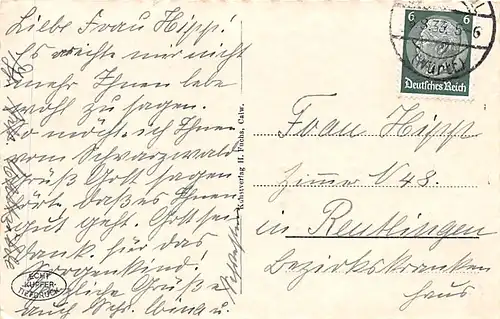 Liebe Frau Hipp!
Es reichte mir nicht
mehr Ihnen lebe
wohl zu sagen.
So möcht ich Ihnen
vom Schwarzwald
Grüß Gott sagen
hört daß es Ihnen
gut geht. Gott sei
dank. für das
Sorgenkind!
Grüße
auch Schr.
ECHT
KUPFER-
TIEFDRUCK
Kunstverlag H. Fuchs, Calw.
6 6
Deutsches Reich
(Württ)
Frau Hipp
Zimm N 48.
in Reutlingen
Bezirkskranken
haus